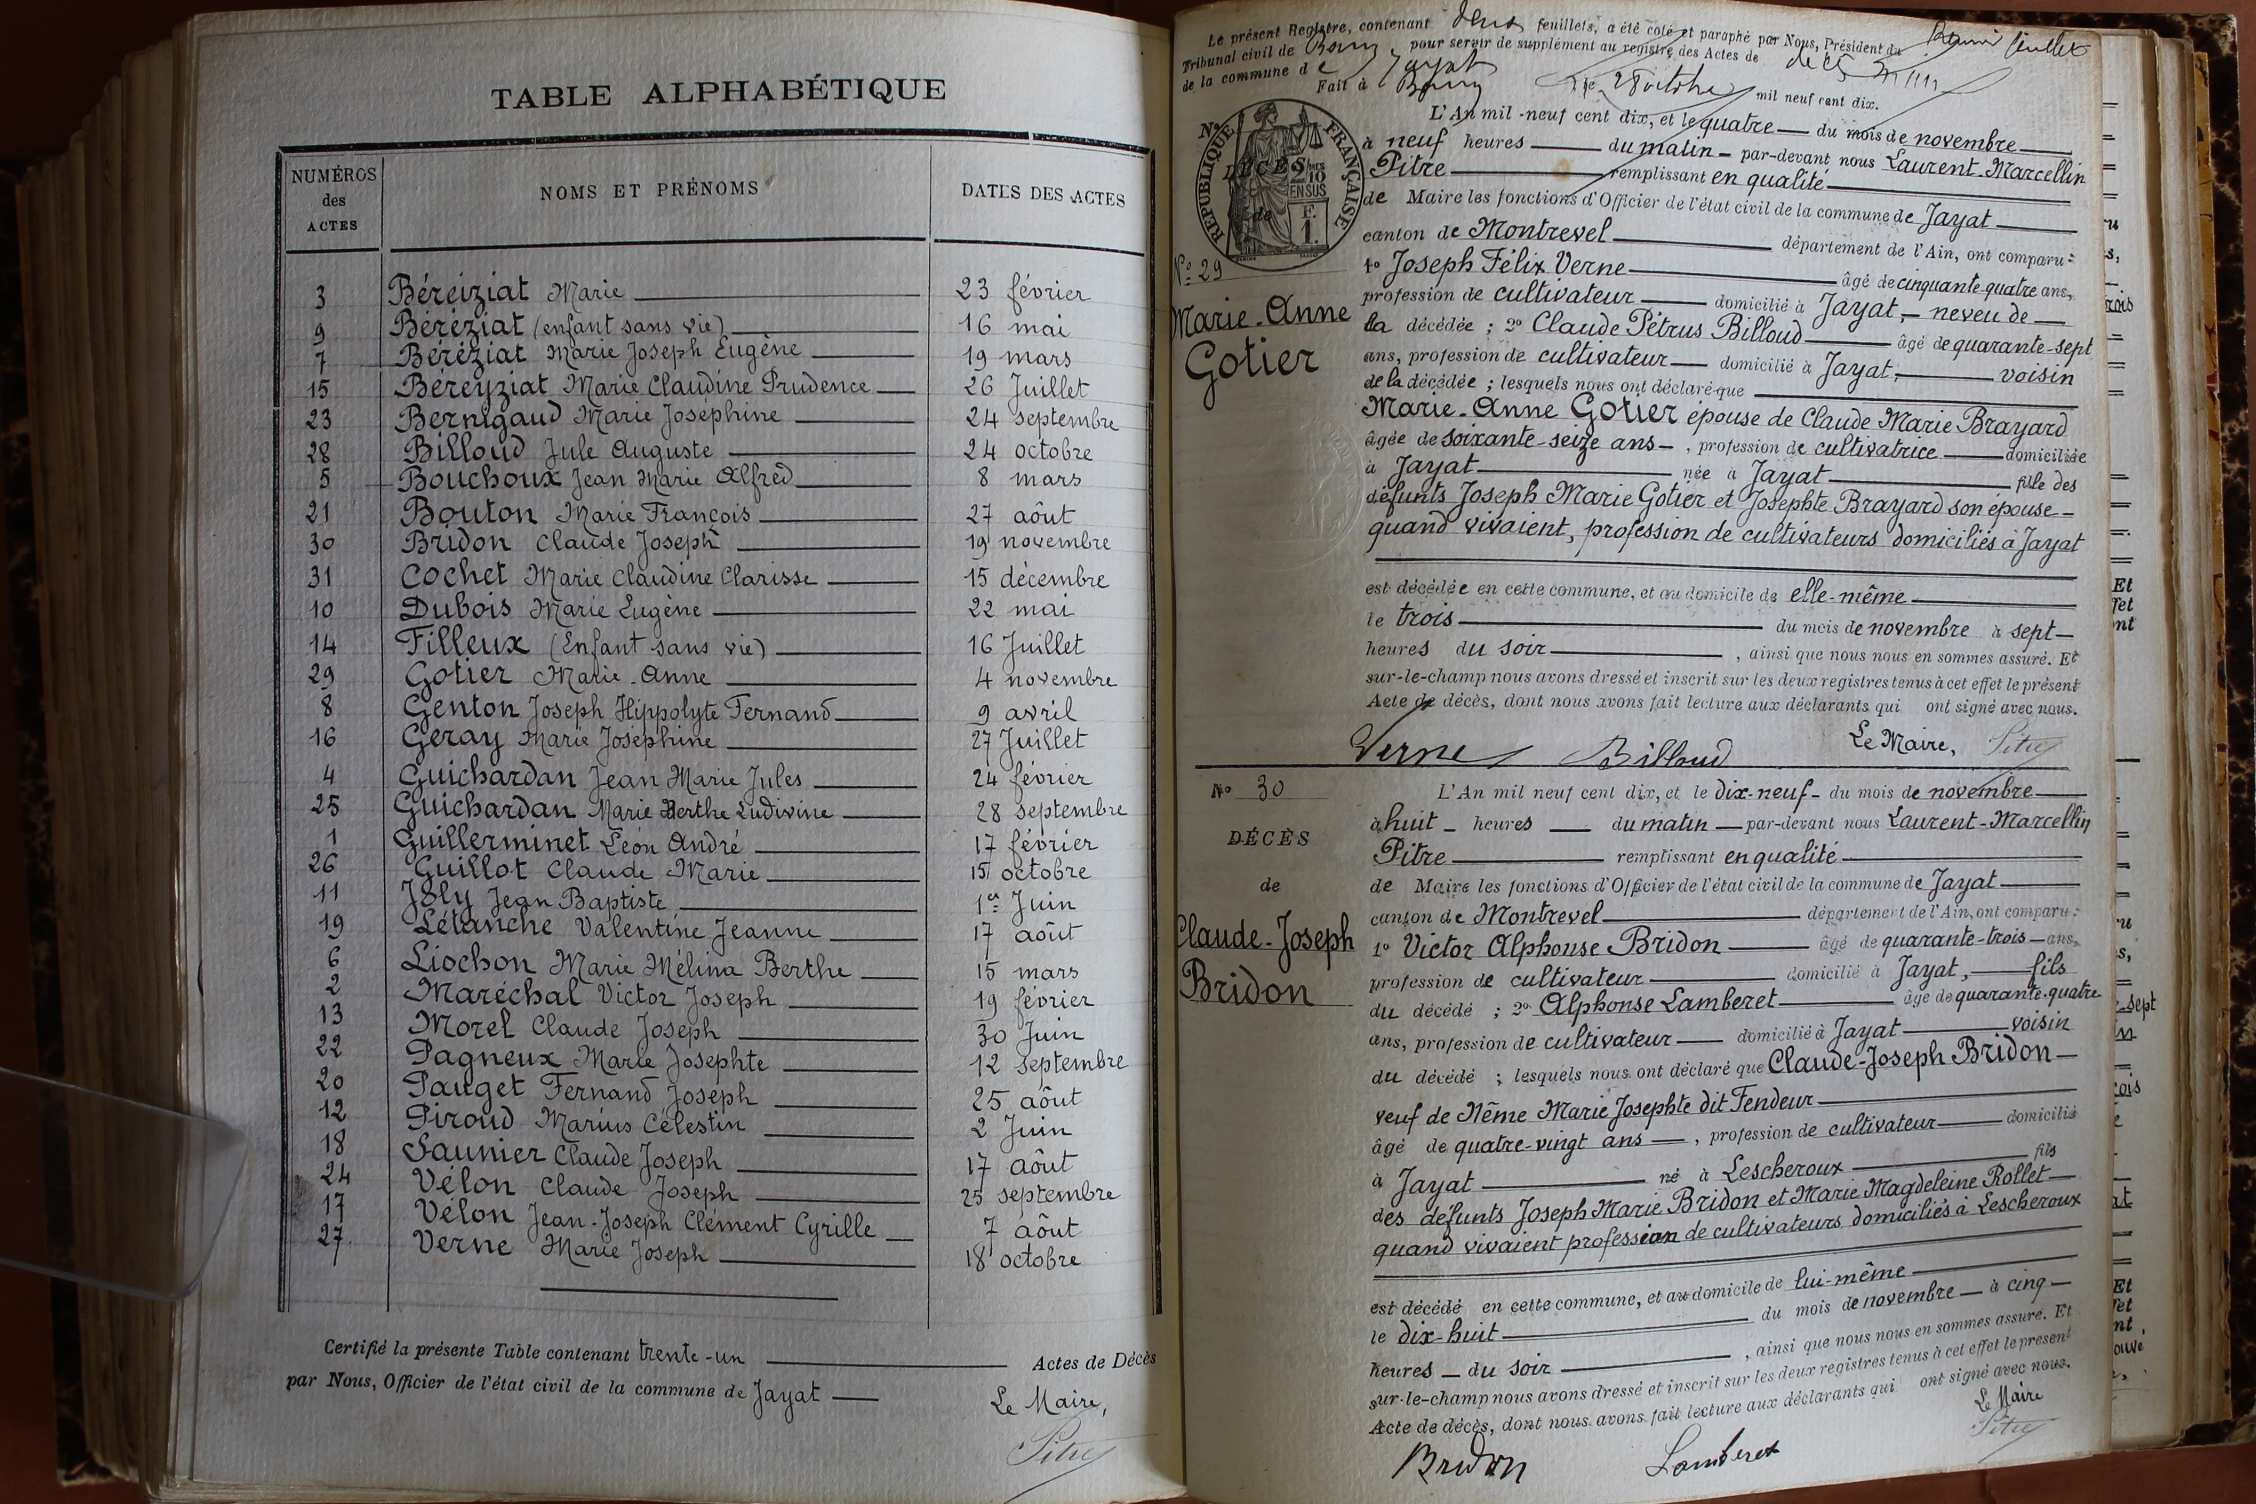 TABLE ALPHABÉTIQUE
NUMÉROS des ACTES
NOMS ET PRÉNOMS
DATES DES ACTES
3 Béréiziat Marie 23 février
9 Béréziat (enfant sans vie) 16 mai
7 Béréziat Marie Joseph Eugène 19 mars
15 Béreyziat Marie Claudine Prudence 26 Juillet
23 Bernigaud Marie Joséphine 24 septembre
28 Billoud Jule Auguste 24 octobre
5 Bouchoux Jean Marie Alfred 8 mars
21 Bouton Marie François 27 aôut
30 Bridon Claude Joseph 19 novembre
31 Cochet Marie Claudine Clarisse 15 décembre
10 Dubois Marie Eugène 22 mai
14 Filleux (Enfant sans vie) 16 Juillet
29 Gotier Marie-Anne 4 novembre
8 Genton Joseph Hippolyte Fernand 9 avril
16 Géray Marie Joséphine 27 Juillet
4 Guichardan Jean Marie Jules 24 février
25 Guichardan Marie Berthe Ludivine 28 septembre
1 Guillerminet Léon André 17 février
26 Guillot Claude Marie 15 octobre
11 Joly Jean Baptiste 1er Juin
19 Létanche Valentine Jeanne 17 aôut
6 Liochon Marie Mélina Berthe 15 mars
2 Maréchal Victor Joseph 19 février
13 Morel Claude Joseph 30 Juin
22 Pagneux Marie Josephte 12 septembre
20 Pauget Fernand Joseph 25 aôut
12 Piroud Marius Célestin 2 Juin
18 Saunier Claude Joseph 17 aôut
24 Vélon Claude Joseph 25 septembre
17 Vélon Jean-Joseph Clément Cyrille 7 aôut
27 Verne Marie Joseph 18 octobre
Certifié la présente Table contenant trente-un Actes de Décès
par Nous, Officier de l'état civil de la commune de Jayat
Le Maire,
Pitre
Le présent Registre, contenant deux feuillets, a été coté et paraphé par Nous, Président du
Tribunal civil de Bourg, pour servir de supplément au registre des Actes de décès
de la commune de Jayat
Fait à Bourg le 28 octobre mil neuf cent dix.
RÉPUBLIQUE FRANÇAISE
2/10 EN SUS
F. 1.
N° 29
DÉCÈS
de
Marie-Anne
Gotier
L'An mil-neuf cent dix, et le quatre du mois de novembre
à neuf heures du matin par-devant nous Laurent-Marcellin
Pitre remplissant en qualité
de Maire les fonctions d'Officier de l'état civil de la commune de Jayat
canton de Montrevel département de l'Ain, ont comparu:
1° Joseph Félix Verne âgé de cinquante-quatre ans,
profession de cultivateur domicilié à Jayat, neveu de
la décédée; 2° Claude Pétrus Billoud âgé de quarante-sept
ans, profession de cultivateur domicilié à Jayat, voisin
de la décédée; lesquels nous ont déclaré que
Marie-Anne Gotier épouse de Claude Marie Brayard
âgée de soixante-seize ans, profession de cultivatrice domiciliée
à Jayat née à Jayat fille des
défunts Joseph Marie Gotier et Josephte Brayard son épouse
quand vivaient, profession de cultivateurs domiciliés à Jayat
est décédée en cette commune, et au domicile de elle-même
le trois du mois de novembre à sept
heures du soir, ainsi que nous nous en sommes assuré. Et
sur-le-champ nous avons dressé et inscrit sur les deux registres tenus à cet effet le présent
Acte de décès, dont nous avons fait lecture aux déclarants qui ont signé avec nous.
Verne Billoud Le Maire, Pitre
N° 30
DÉCÈS
de
Claude-Joseph
Bridon
L'An mil neuf cent dix, et le dix-neuf du mois de novembre
à huit heures du matin par-devant nous Laurent-Marcellin
Pitre remplissant en qualité
de Maire les fonctions d'Officier de l'état civil de la commune de Jayat
canton de Montrevel département de l'Ain, ont comparu:
1° Victor Alphonse Bridon âgé de quarante-trois ans,
profession de cultivateur domicilié à Jayat, fils
du décédé; 2° Alphonse Lamberet âgé de quarante-quatre
ans, profession de cultivateur domicilié à Jayat voisin
du décédé; lesquels nous ont déclaré que Claude-Joseph Bridon
veuf de Même Marie Josephte dit Fendeur
âgé de quatre-vingt ans, profession de cultivateur domicilié
à Jayat né à Lescheroux fils
des défunts Joseph Marie Bridon et Marie Magdeleine Rollet
quand vivaient profession de cultivateurs domiciliés à Lescheroux
est décédé en cette commune, et au domicile de lui-même
le dix-huit du mois de novembre à cinq
heures du soir, ainsi que nous nous en sommes assuré. Et
sur-le-champ nous avons dressé et inscrit sur les deux registres tenus à cet effet le présent
Acte de décès, dont nous avons fait lecture aux déclarants qui ont signé avec nous.
Le Maire
Bridon Lamberet Pitre